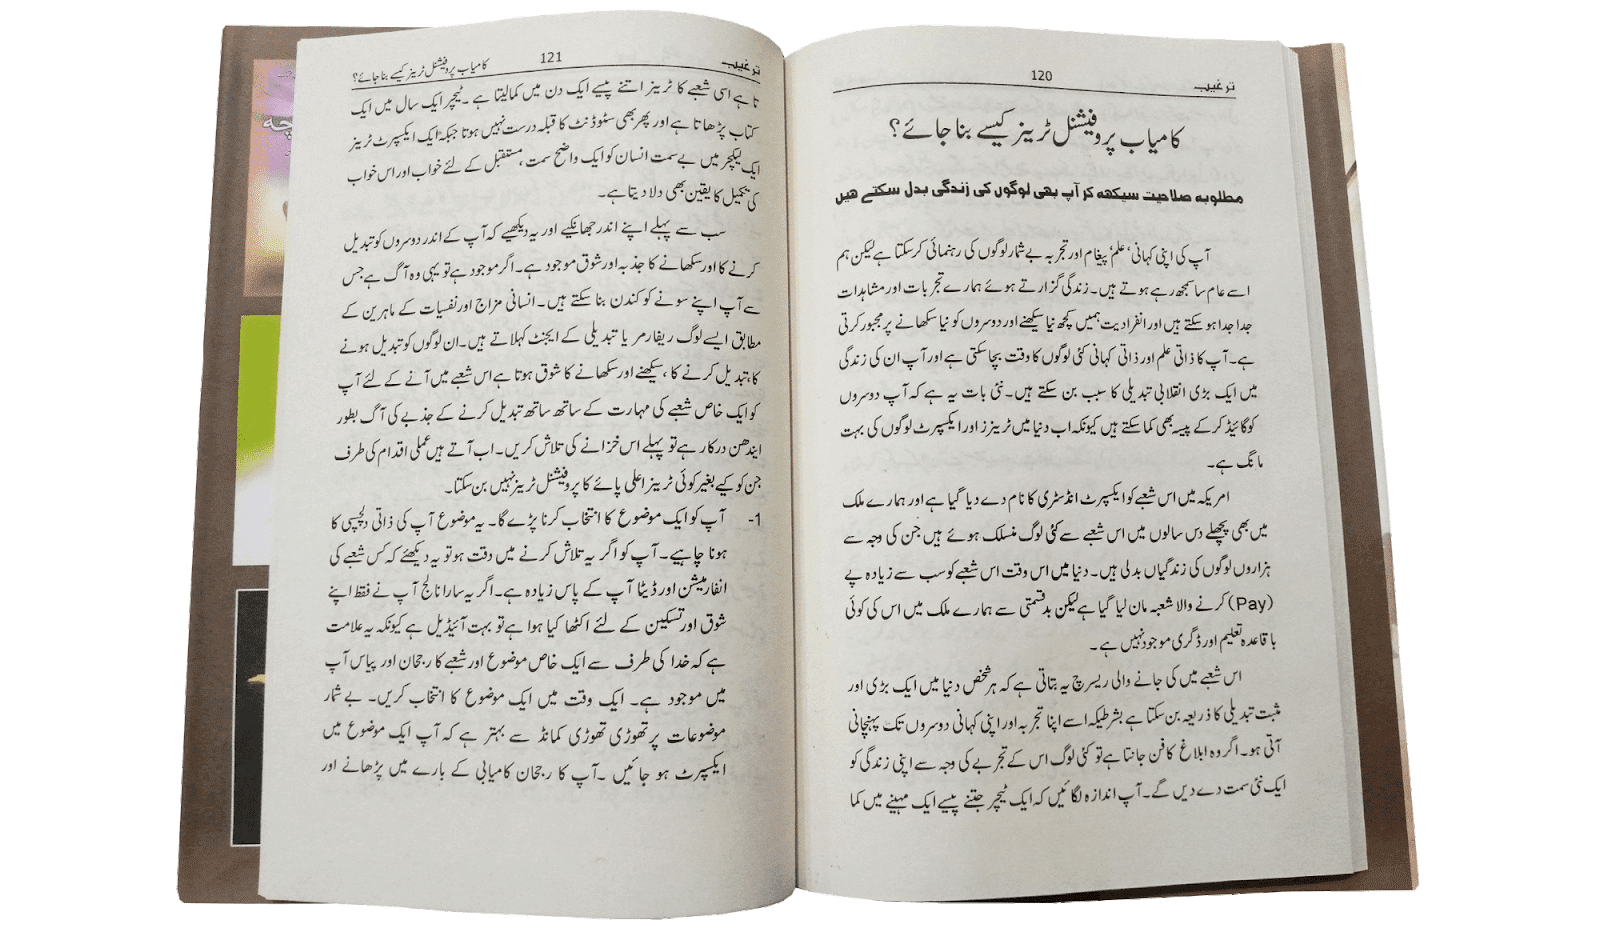 ترغیب
120
کامیاب پروفیشنل ٹرینر کیسے بنا جائے؟
مطلوبہ صلاحیت سیکھ کر آپ بھی لوگوں کی زندگی بدل سکتے ہیں
آپ کی اپنی کہانی‘ علم‘ پیغام اور تجربہ بے شمار لوگوں کی رہنمائی کر سکتا ہے لیکن ہم
اسے عام سا سمجھ رہے ہوتے ہیں۔ زندگی گزارتے ہوئے ہمارے تجربات اور مشاہدات
جدا جدا ہو سکتے ہیں اور انفرادیت ہمیں کچھ نیا سیکھنے اور دوسروں کو نیا سکھانے پر مجبور کرتی
ہے۔ آپ کا ذاتی علم اور ذاتی کہانی کئی لوگوں کا وقت بچا سکتی ہے اور آپ ان کی زندگی
میں ایک بڑی انقلابی تبدیلی کا سبب بن سکتے ہیں۔ نئی بات یہ ہے کہ آپ دوسروں
کو گائیڈ کر کے پیسہ بھی کما سکتے ہیں کیونکہ اب دنیا میں ٹرینرز اور ایکسپرٹ لوگوں کی بہت
مانگ ہے۔
امریکہ میں اس شعبے کو ایکسپرٹ انڈسٹری کا نام دے دیا گیا ہے اور ہمارے ملک
میں بھی پچھلے دس سالوں میں اس شعبے سے کئی لوگ منسلک ہوئے ہیں جن کی وجہ سے
ہزاروں لوگوں کی زندگیاں بدلی ہیں۔ دنیا میں اس وقت اس شعبے کو سب سے زیادہ پے
(Pay) کرنے والا شعبہ مان لیا گیا ہے لیکن بدقسمتی سے ہمارے ملک میں اس کی کوئی
باقاعدہ تعلیم اور ڈگری موجود نہیں ہے۔
اس شعبے میں کی جانے والی ریسرچ یہ بتاتی ہے کہ ہر شخص دنیا میں ایک بڑی اور
مثبت تبدیلی کا ذریعہ بن سکتا ہے بشرطیکہ اسے اپنا تجربہ اور اپنی کہانی دوسروں تک پہنچانی
آتی ہو۔ اگر وہ ابلاغ کا فن جانتا ہے تو کئی لوگ اس کے تجربے کی وجہ سے اپنی زندگی کو
ایک نئی سمت دے دیں گے۔ آپ اندازہ لگائیں کہ ایک ٹیچر جتنے پیسے ایک مہینے میں کما
ترغیب
121
کامیاب پروفیشنل ٹرینر کیسے بنا جائے؟
تا ہے اسی شعبے کا ٹرینر اتنے پیسے ایک دن میں کما لیتا ہے۔ ٹیچر ایک سال میں ایک
کتاب پڑھاتا ہے اور پھر بھی سٹوڈنٹ کا قبلہ درست نہیں ہوتا جبکہ ایک ایکسپرٹ ٹرینر
ایک لیکچر میں بے سمت انسان کو ایک واضح سمت، مستقبل کے لئے خواب اور اس خواب
کی تکمیل کا یقین بھی دلا دیتا ہے۔
سب سے پہلے اپنے اندر جھانکیے اور یہ دیکھیے کہ آپ کے اندر دوسروں کو تبدیل
کرنے کا اور سکھانے کا جذبہ اور شوق موجود ہے۔ اگر موجود ہے تو یہی وہ آگ ہے جس
سے آپ اپنے سونے کو کندن بنا سکتے ہیں۔ انسانی مزاج اور نفسیات کے ماہرین کے
مطابق ایسے لوگ ریفارمر یا تبدیلی کے ایجنٹ کہلاتے ہیں۔ ان لوگوں کو تبدیل ہونے
کا، تبدیل کرنے کا، سیکھنے اور سکھانے کا شوق ہوتا ہے اس شعبے میں آنے کے لئے آپ
کو ایک خاص شعبے کی مہارت کے ساتھ ساتھ تبدیل کرنے کے جذبے کی آگ بطور
ایندھن درکار ہے تو پہلے اس خزانے کی تلاش کریں۔ اب آتے ہیں عملی اقدام کی طرف
جن کو کیے بغیر کوئی ٹرینر اعلی پائے کا پروفیشنل ٹرینر نہیں بن سکتا۔
1- آپ کو ایک موضوع کا انتخاب کرنا پڑے گا۔ یہ موضوع آپ کی ذاتی دلچسپی کا
ہونا چاہیے۔ آپ کو اگر یہ تلاش کرنے میں دقت ہو تو یہ دیکھئے کہ کس شعبے کی
انفارمیشن اور ڈیٹا آپ کے پاس زیادہ ہے۔ اگر یہ سارا نالج آپ نے فقط اپنے
شوق اور تسکین کے لئے اکٹھا کیا ہوا ہے تو بہت آئیڈیل ہے کیونکہ یہ علامت
ہے کہ خدا کی طرف سے ایک خاص موضوع اور شعبے کا رجحان اور پیاس آپ
میں موجود ہے۔ ایک وقت میں ایک موضوع کا انتخاب کریں۔ بے شمار
موضوعات پر تھوڑی تھوڑی کمانڈ سے بہتر ہے کہ آپ ایک موضوع میں
ایکسپرٹ ہو جائیں۔ آپ کا رجحان کامیابی کے بارے میں پڑھانے اور